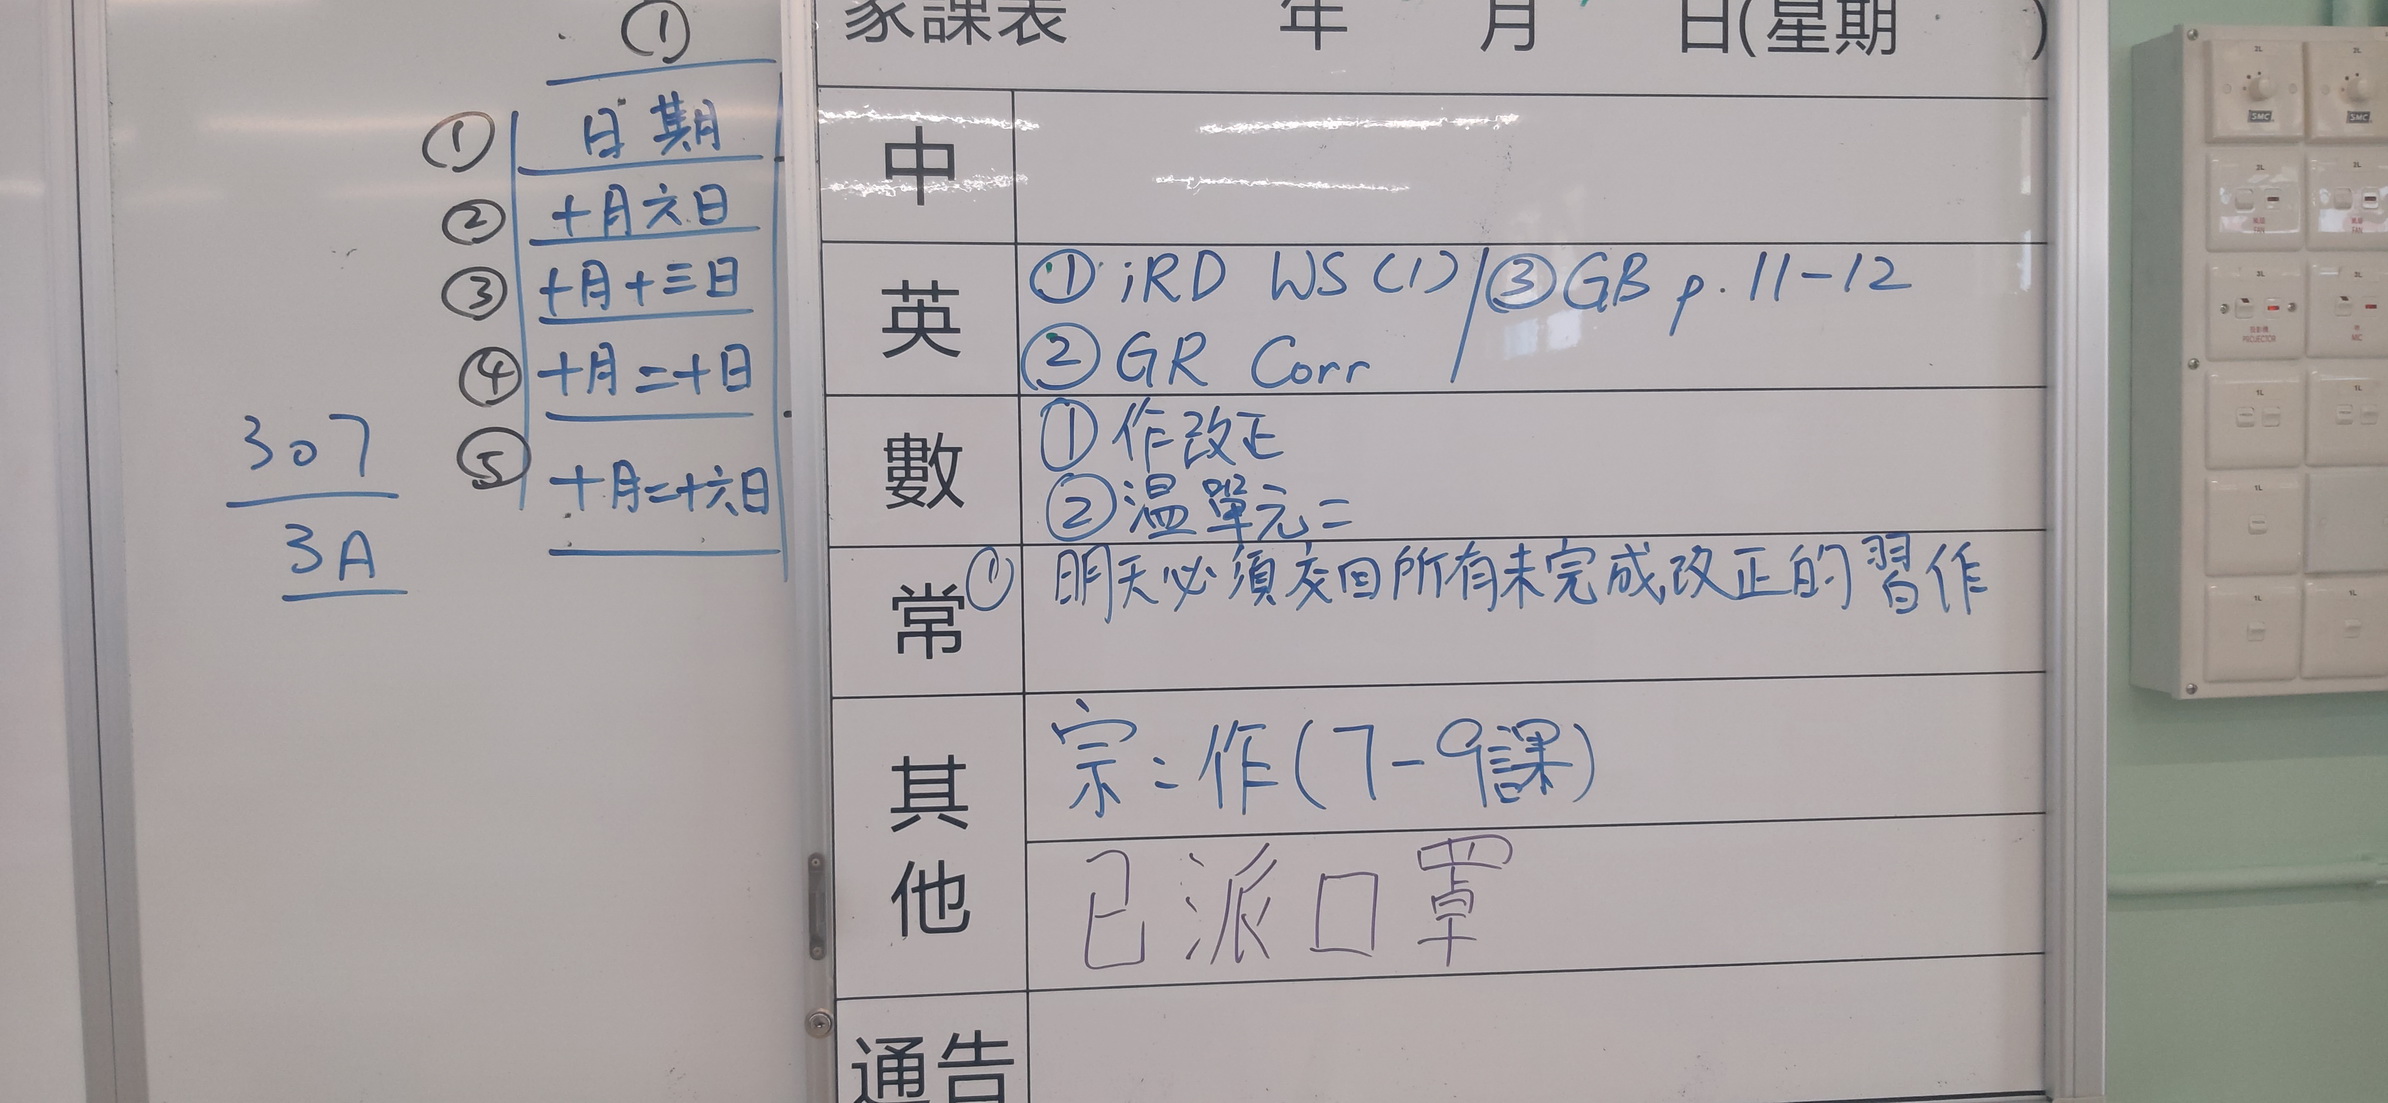 ①
① 日期
② 十月六日
③ 十月十三日
④ 十月二十日
⑤ 十月二十六日
307
3A
家課表 年 月 日(星期 )
中
英
① iRD WS (1) / ③ GB p. 11-12
② GR Corr
數
① 作改正
② 温單元二
常
① 明天必須交回所有未完成改正的習作
其他
宗：作(7-9課)
已派口罩
通告
2L
2L
SMC
SMC
2L
2L
風扇
FAN
風扇
FAN
3L
2L
投影機
PROJECTOR
MIC
1L
1L
1L
1L
1L